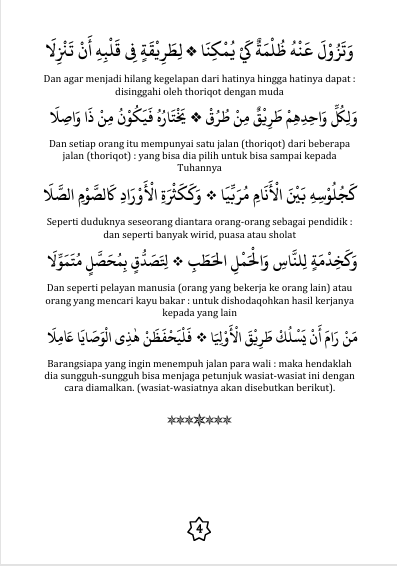 وَتَزُوْلَ عَنْهُ ظُلْمَةٌ كَيْ يُمْكِنَا ❖ لِطَرِيْقَةٍ فِى قَلْبِهِ أَنْ تَنْزِلَا
Dan agar menjadi hilang kegelapan dari hatinya hingga hatinya dapat :
disinggahi oleh thoriqot dengan muda
وَلِكُلِّ وَاحِدِهِمْ طَرِيْقٌ مِنْ طُرُقْ ❖ يَخْتَارُهُ فَيَكُوْنُ مِنْ ذَا وَاصِلَا
Dan setiap orang itu mempunyai satu jalan (thoriqot) dari beberapa
jalan (thoriqot) : yang bisa dia pilih untuk bisa sampai kepada
Tuhannya
كَجُلُوْسِهِ بَيْنَ الْأَنَامِ مُرَبِّيَا ❖ وَكَكَثْرَةِ الْأَوْرَادِ كَالصَّوْمِ الصَّلَا
Seperti duduknya seseorang diantara orang-orang sebagai pendidik :
dan seperti banyak wirid, puasa atau sholat
وَكَخِدْمَةٍ لِلنَّاسِ وَالْحَمْلِ الحَطَبِ ❖ لِتَصَدُّقٍ بِمُحَصَّلٍ مُتَمَوِّلَا
Dan seperti pelayan manusia (orang yang bekerja ke orang lain) atau
orang yang mencari kayu bakar : untuk dishodaqohkan hasil kerjanya
kepada yang lain
مَنْ رَامَ أَنْ يَسْلُكْ طَرِيْقَ الْأَوْلِيَا ❖ فَلْيَحْفَظَنْ هٰذِى الْوَصَايَا عَامِلَا
Barangsiapa yang ingin menempuh jalan para wali : maka hendaklah
dia sungguh-sungguh bisa menjaga petunjuk wasiat-wasiat ini dengan
cara diamalkan. (wasiat-wasiatnya akan disebutkan berikut).
4